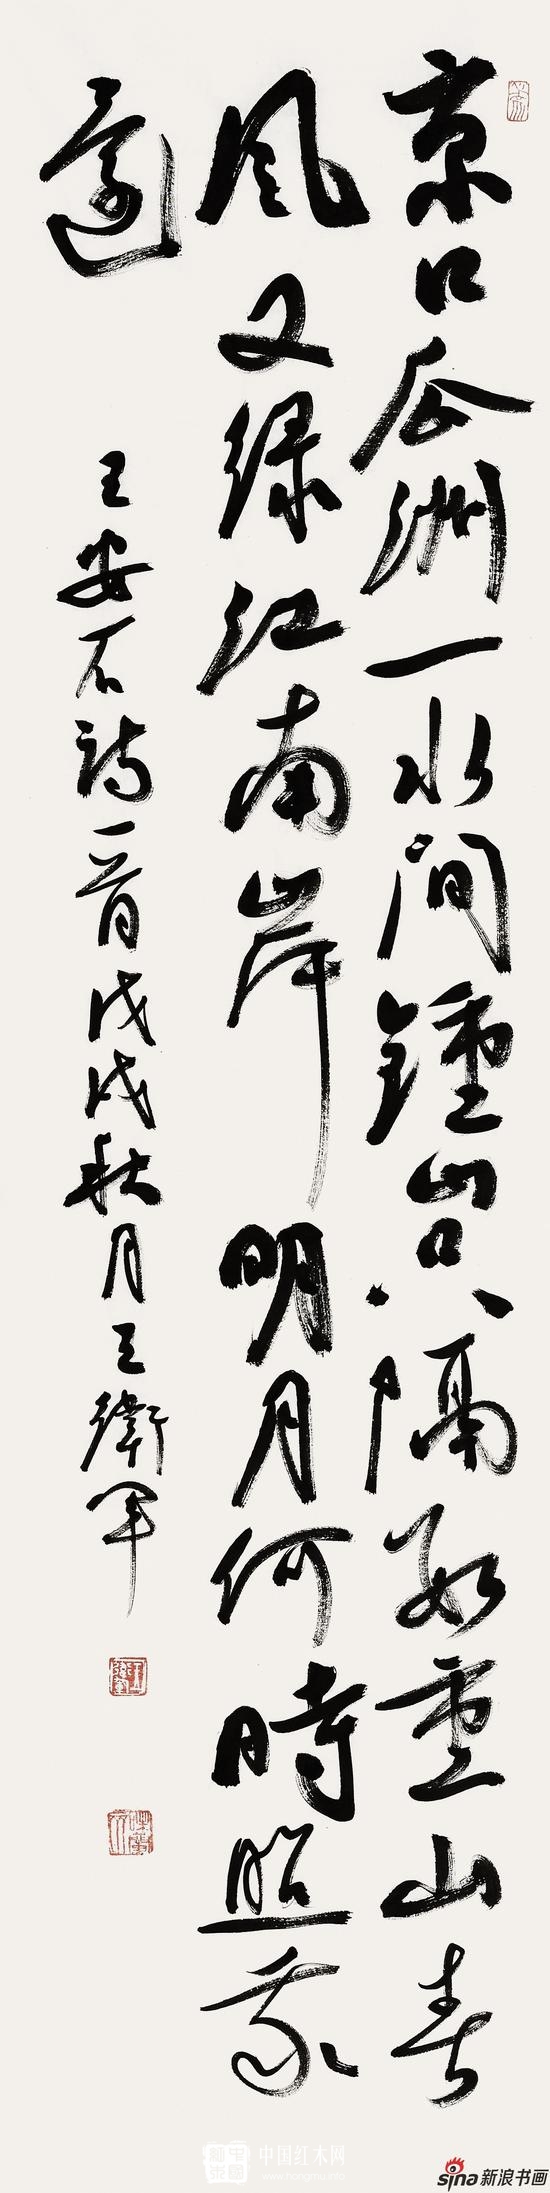 京口瓜洲一水间鍾山只隔数重山春
风又绿江南岸明月何時照我
還
王安石詩一首戊戌秋月王衛軍
中国红木网
www.hongmu.info
sina新浪书画